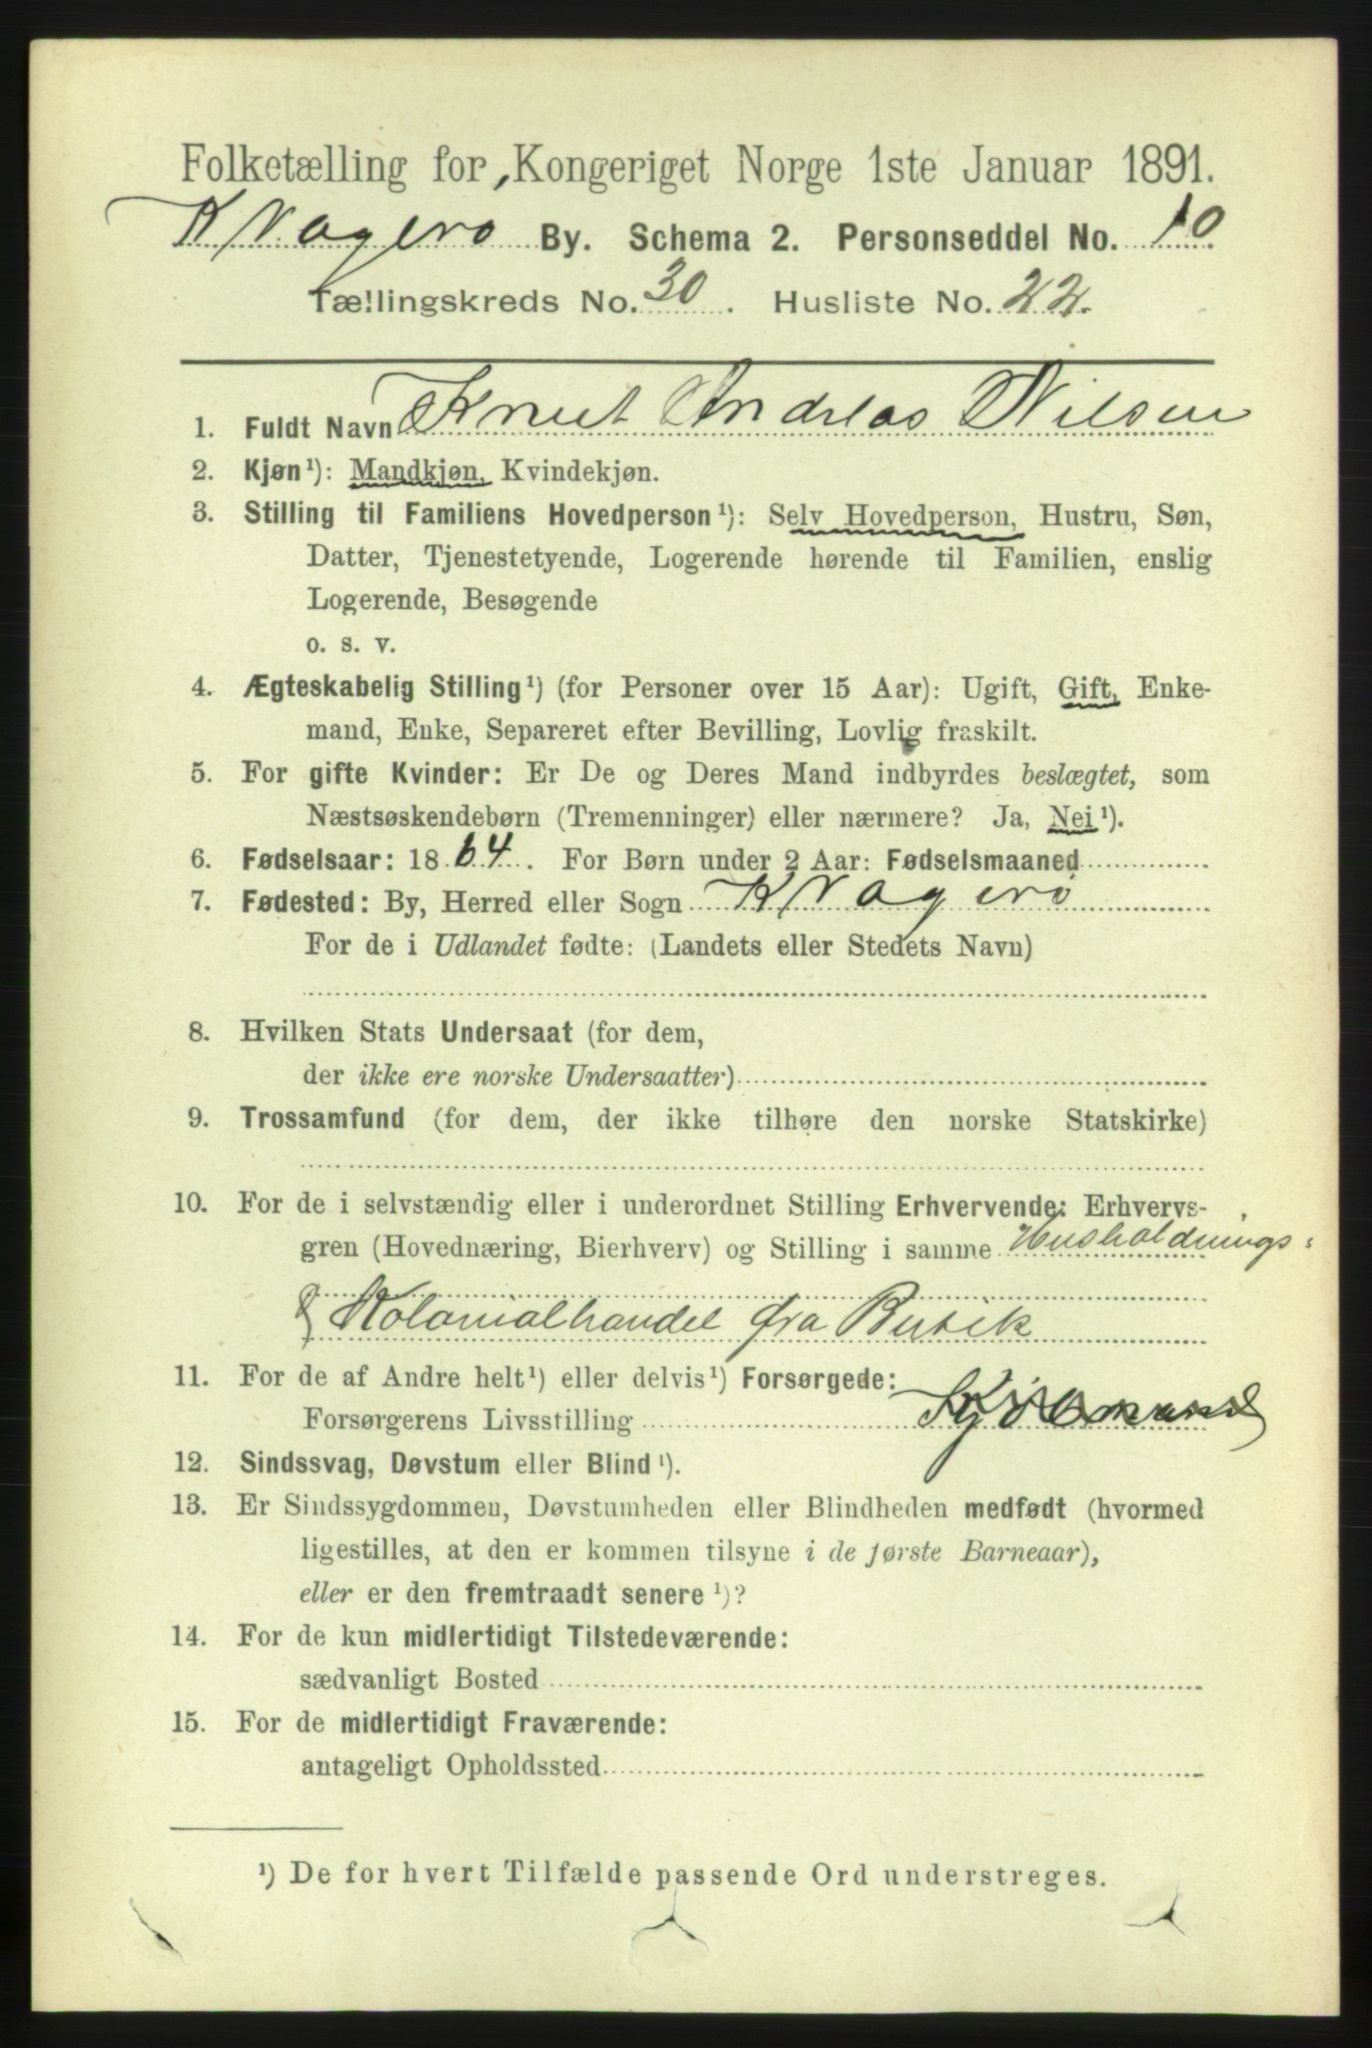 Folketælling for Kongeriget Norge 1ste Januar 1891.
Kragerø By. Schema 2. Personseddel No. 10
Tællingskreds No. 30. Husliste No. 22.
1. Fuldt Navn Knut Andreas Nilsen
2. Kjøn¹): Mandkjøn, Kvindekjøn.
3. Stilling til Familiens Hovedperson¹): Selv Hovedperson, Hustru, Søn,
Datter, Tjenestetyende, Logerende hørende til Familien, enslig
Logerende, Besøgende
o. s. v.
4. Ægteskabelig Stilling¹) (for Personer over 15 Aar): Ugift, Gift, Enke-
mand, Enke, Separeret efter Bevilling, Lovlig fraskilt.
5. For gifte Kvinder: Er De og Deres Mand indbyrdes beslægtet, som
Næstsøskendebørn (Tremenninger) eller nærmere? Ja, Nei¹).
6. Fødselsaar: 1864. For Børn under 2 Aar: Fødselsmaaned
7. Fødested: By, Herred eller Sogn Kragerø
For de i Udlandet fødte: (Landets eller Stedets Navn)
8. Hvilken Stats Undersaat (for dem,
der ikke ere norske Undersaatter)
9. Trossamfund (for dem, der ikke tilhøre den norske Statskirke)
10. For de i selvstændig eller i underordnet Stilling Erhvervende: Erhvervs-
gren (Hovednæring, Bierhverv) og Stilling i samme Husholdnings-
& Kolonialhandel fra Butik
11. For de af Andre helt¹) eller delvis¹) Forsørgede:
Forsørgerens Livsstilling
12. Sindssvag, Døvstum eller Blind¹).
13. Er Sindssygdommen, Døvstumheden eller Blindheden medfødt (hvormed
ligestilles, at den er kommen tilsyne i de første Barneaar),
eller er den fremtraadt senere¹)?
14. For de kun midlertidigt Tilstedeværende:
sædvanligt Bosted
15. For de midlertidigt Fraværende:
antageligt Opholdssted
¹) De for hvert Tilfælde passende Ord understreges.